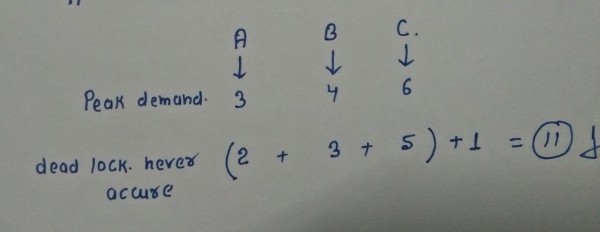 A B C.
↓ ↓ ↓
Peak demand. 3 4 6
dead lock. never (2 + 3 + 5) + 1 = 11
accure